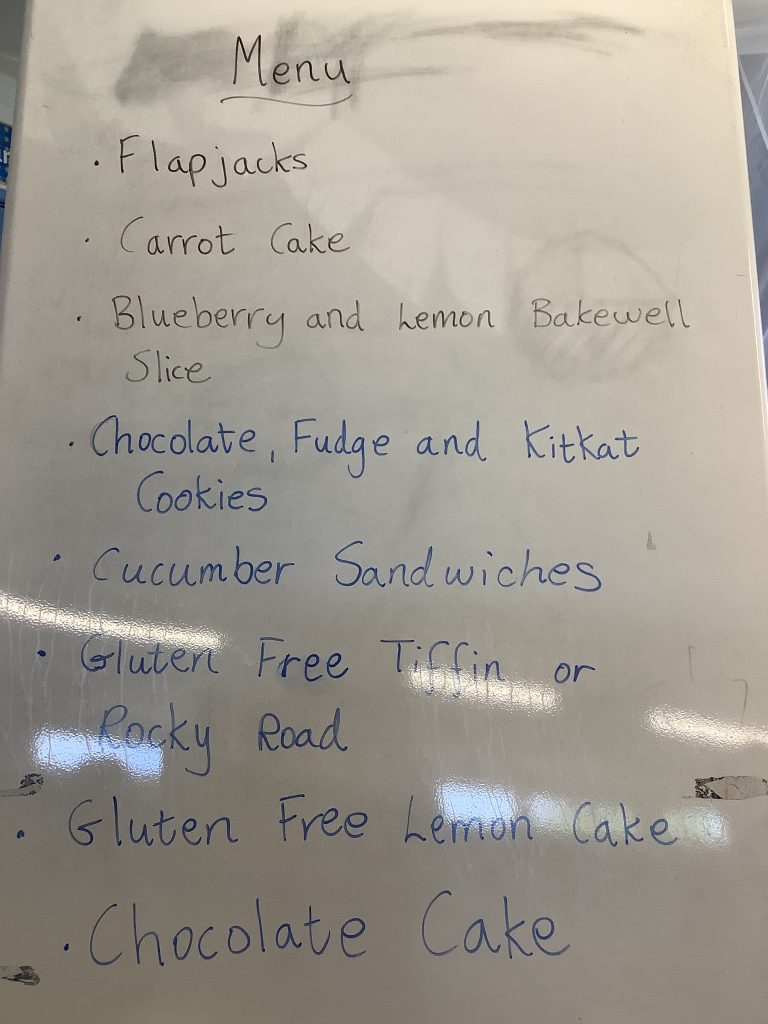 Menu
· Flapjacks
· Carrot Cake
· Blueberry and Lemon Bakewell
Slice
· Chocolate, Fudge and Kitkat
Cookies
· Cucumber Sandwiches
· Gluten Free Tiffin or
Rocky Road
· Gluten Free Lemon Cake
· Chocolate Cake